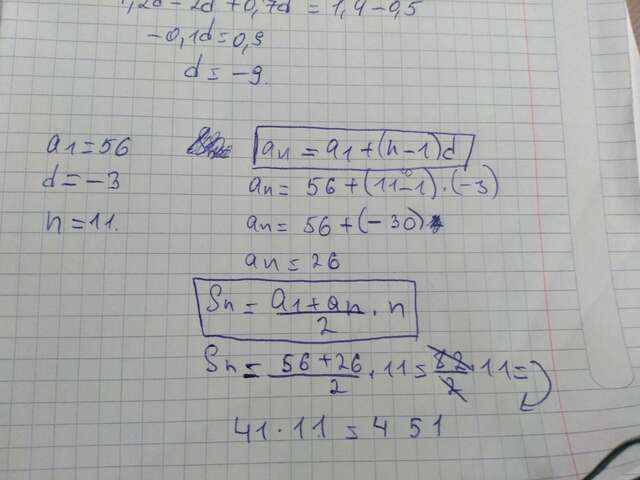 1,2d - 2d + 0,7d = 1,4 - 0,5
-0,1d = 0,9
d = -9.
a1 = 56
d = -3
n = 11.
an = a1 + (n - 1)d
an = 56 + (11 - 1) · (-3)
an = 56 + (-30)
an = 26
Sn = a1 + an / 2 · n
Sn = 56 + 26 / 2 · 11 = 82 / 2 · 11 =
41 · 11 = 451